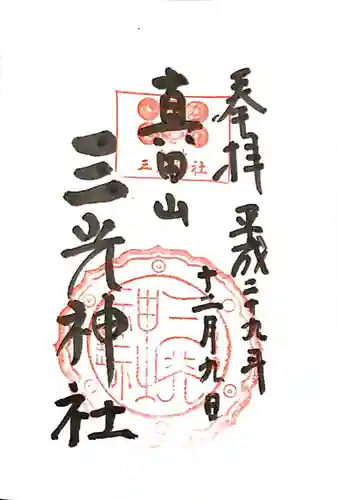 奉拝
平成二十九年
十二月九日
真田山
三光神社
三 社